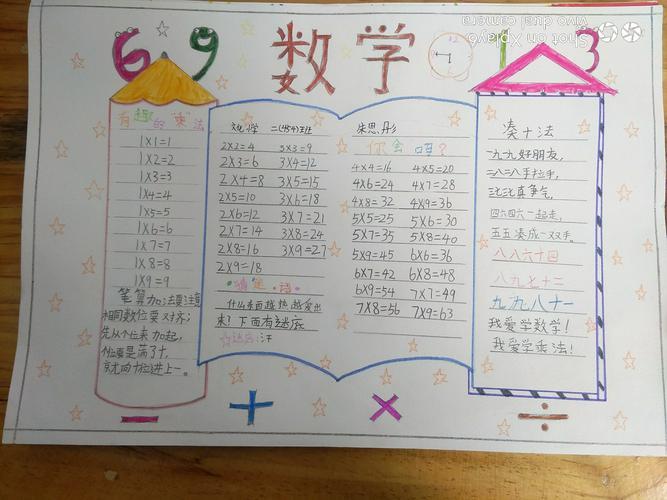 6 9 数学 1 3
Shot on X play6
vivo dual camera
有趣的“乘”法
1×1=1
1×2=2
1×3=3
1×4=4
1×5=5
1×6=6
1×7=7
1×8=8
1×9=9
笔算加法要注意
相同数位要对齐;
先从个位来加起,
个位要是满了十,
就向十位进上一。
文化学 二(454)班
2×2=4 3×3=9
2×3=6 3×4=12
2×4=8 3×5=15
2×5=10 3×6=18
2×6=12 3×7=21
2×7=14 3×8=24
2×8=16 3×9=27
2×9=18
猜谜语
什么东西越热越爱出
来?下面有谜底
谜底:汗
朱思彤
你会吗?
4×4=16 4×5=20
4×6=24 4×7=28
4×8=32 4×9=36
5×5=25 5×6=30
5×7=35 5×8=40
5×9=45 6×6=36
6×7=42 6×8=48
6×9=54 7×7=49
7×8=56 7×9=63
凑十法
一九一九好朋友,
二八二八手拉手,
三七三七真争气,
四六四六一起走,
五五凑成一双手。
八八六十四
八九七十二
九九八十一
我爱学数学!
我爱学乘法!
− + × ÷